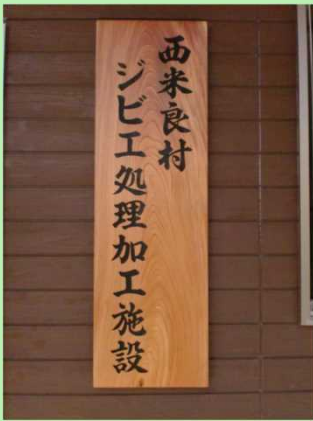 西米良村
ジビエ処理加工施設